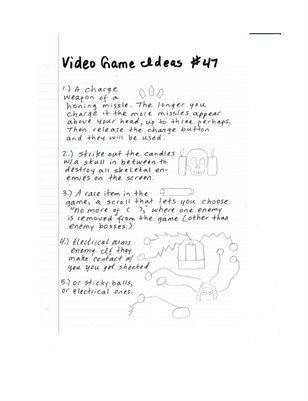 Video Game Ideas #47
1.) A charge
weapon of a
honing missle. The longer you
charge it the more missles appear
above your head, up to three perhaps.
Then release the charge button
and they will be used.
2.) Strike out the candles
w/a skull in between to
destroy all skeletal en-
emies on the screen.
3.) A rare item in the
game, a scroll that lets you choose
"no more of (  )", where one enemy
is removed from the game (other than
enemy bosses.)
4.) Electrical arms
enemy. If they
make contact w/
you you get shocked
5.) or sticky balls,
or electrical ones.